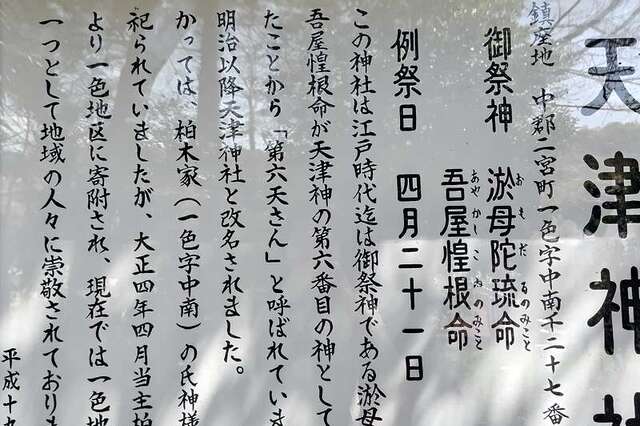 天津神社
鎮座地 中郡二宮町一色字中南千二十七番
御祭神 淤母陀琉命
おもだるのみこと
吾屋惶根命
あやかしこねのみこと
例祭日 四月二十一日
この神社は江戸時代迄は御祭神である淤母
吾屋惶根命が天津神の第六番目の神として
たことから「第六天さん」と呼ばれていま
明治以降天津神社と改名されました。
かっては、柏木家(一色字中南)の氏神様
祀られていましたが、大正四年四月当主柏
より一色地区に寄附され、現在では一色地
一つとして地域の人々に崇敬されておりま
平成十九